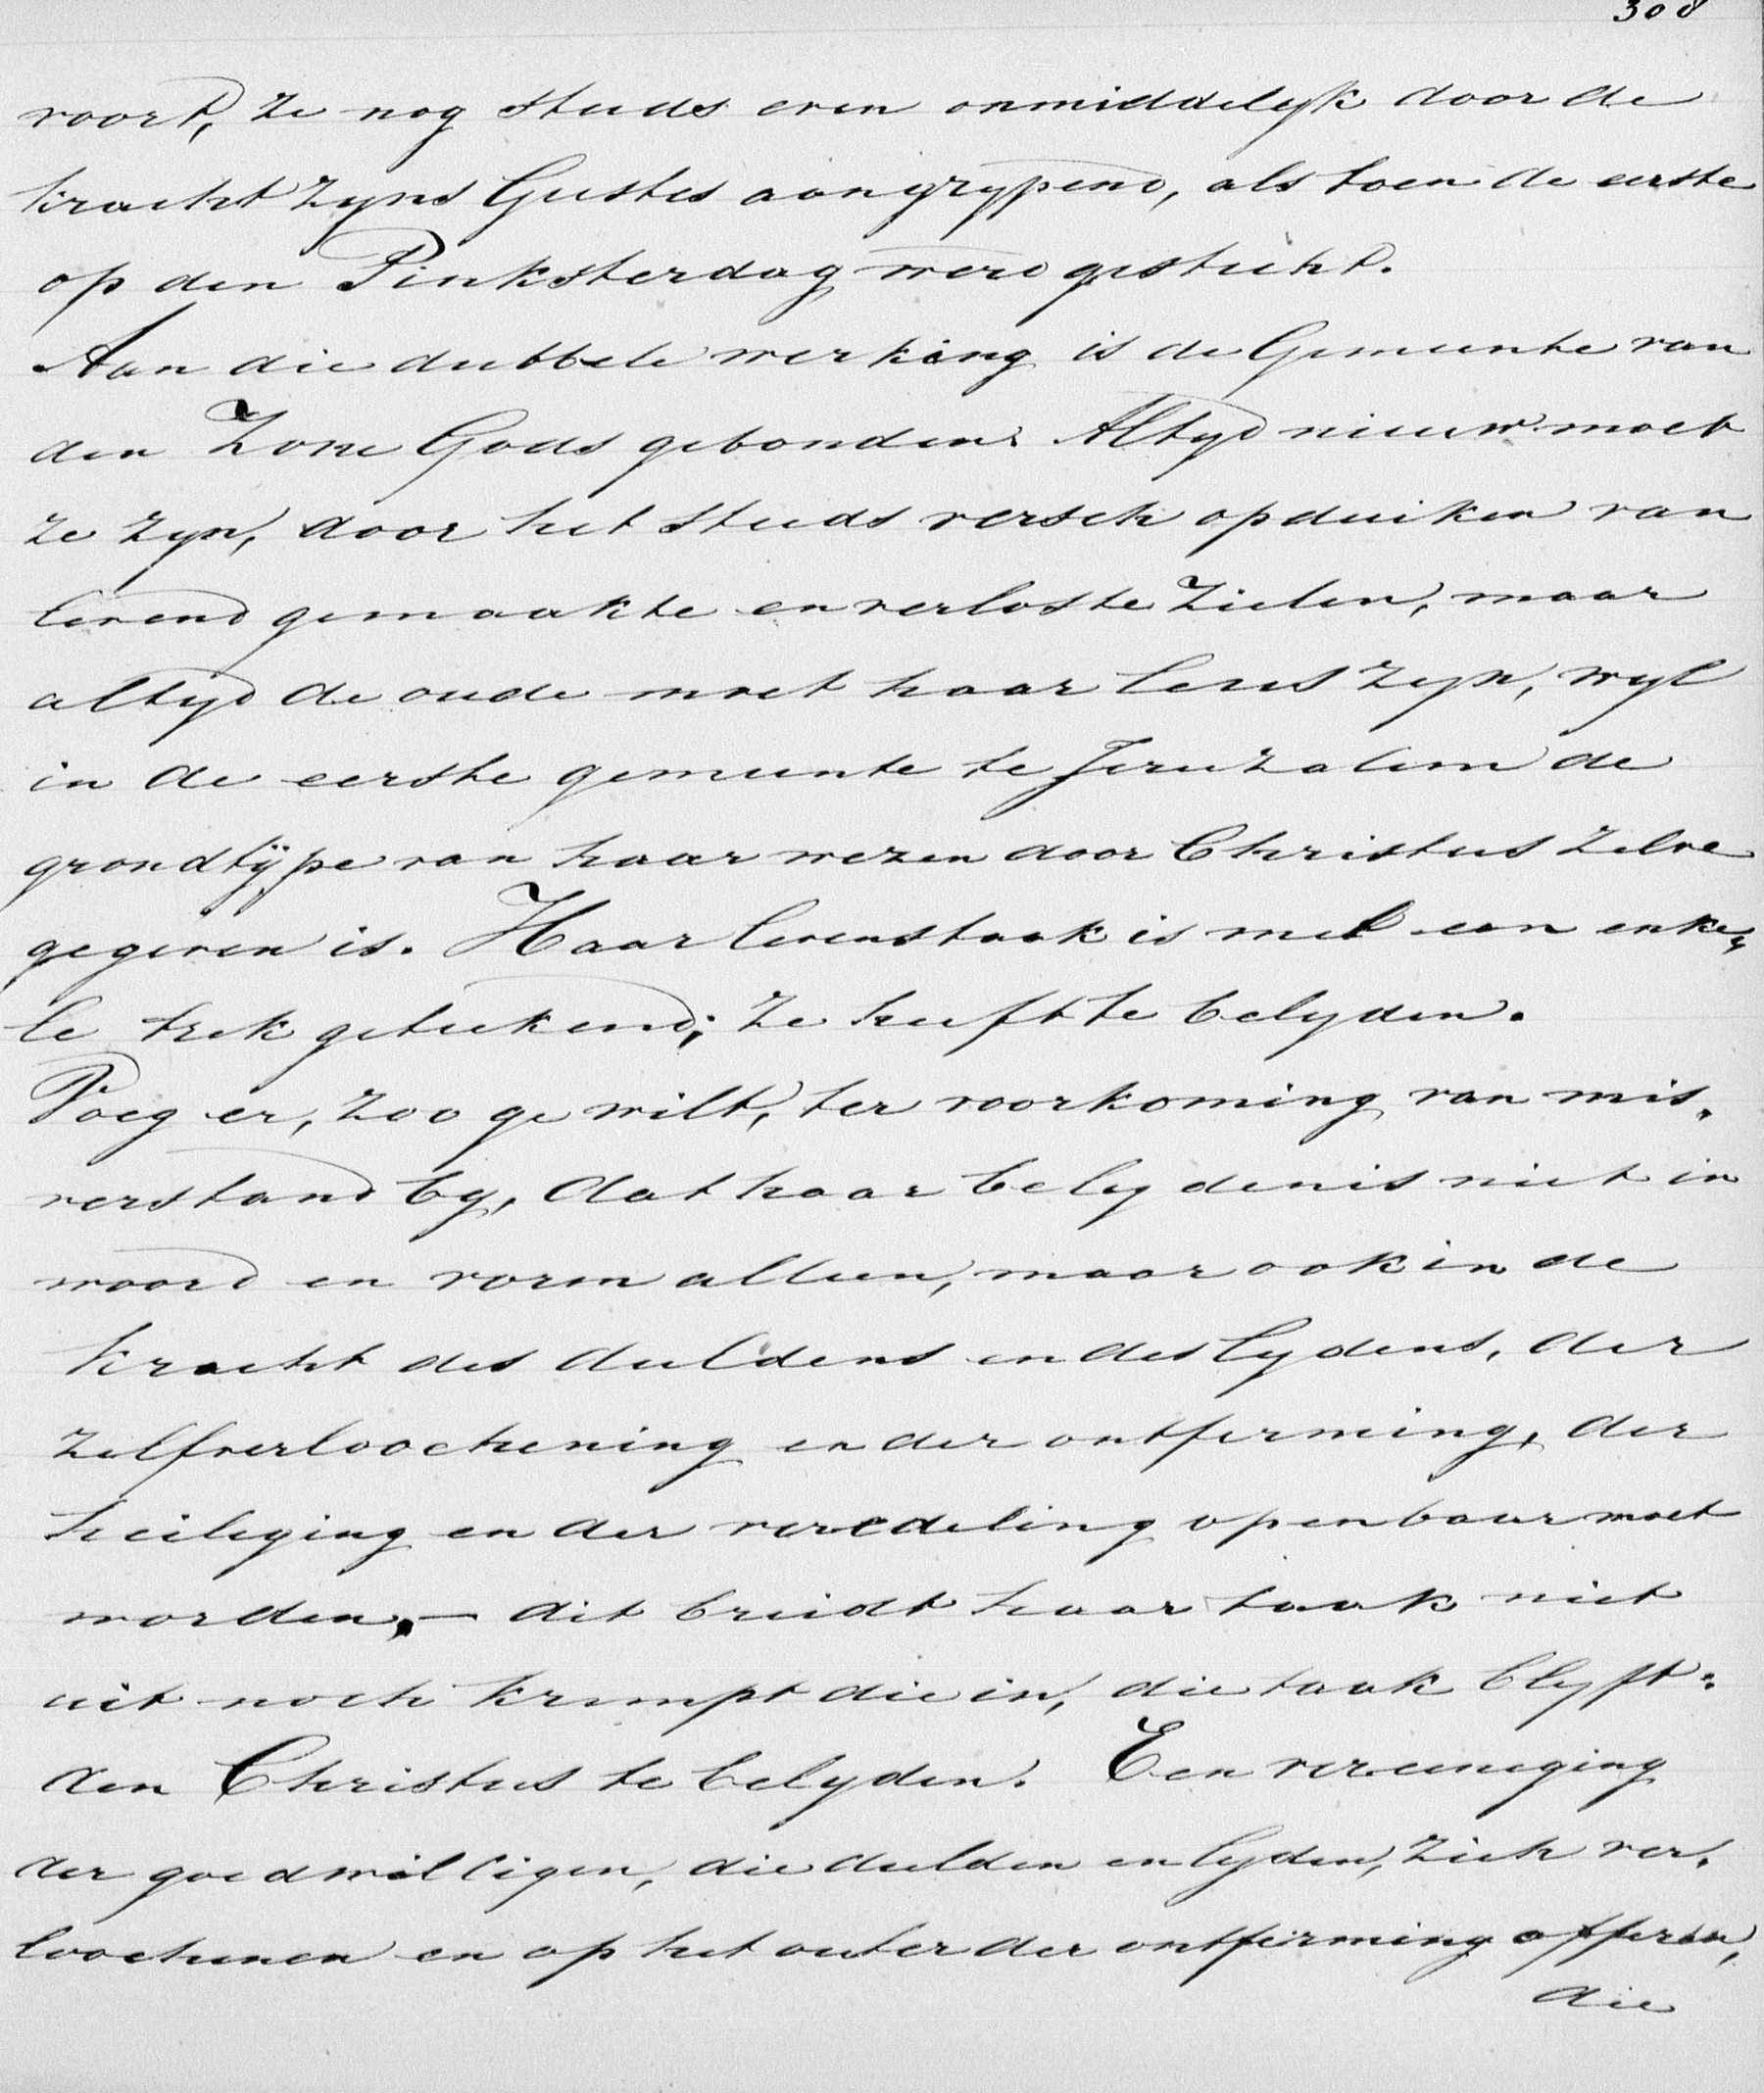 308
voort, ze nog steeds even onmiddelyk door de
kracht zyns Geestes aangrypend, als toen de eerste
op den Pinksterdag werd gesticht.
Aan die dubbele werking is de Gemeente van
den Zone Gods gebonden. Altyd nieuw moet
ze zyn, door het steeds versch opduiken van
levend gemaakte en verloste Zielen, maar
altyd de oude moet haar leus zyn, wyl
in de eerste gemeente te Jeruzalem de
grondtÿpe van haar wezen door Christus zelve
gegeven is. Haar levenstaak is met een enke„
le trek geteekend; ze heeft te belyden.
Voeg er, zoo ge wilt, ter voorkoming van mis„
verstand by, dat haar belydenis niet in
woord en vorm alleen, maar ook in de
kracht des duldens en des lydens, der
zelfverloochening en der ontferming, der
heiliging en der veredeling openbaar moet
worden, — dit breidt haar taak niet
uit noch krimpt die in, die taak blyft:
den Christus te belyden. Een vereeniging
der goedwilligen, die dulden en lyden, zich ver„
loochenen en op het outer der ontferming offeren,
die